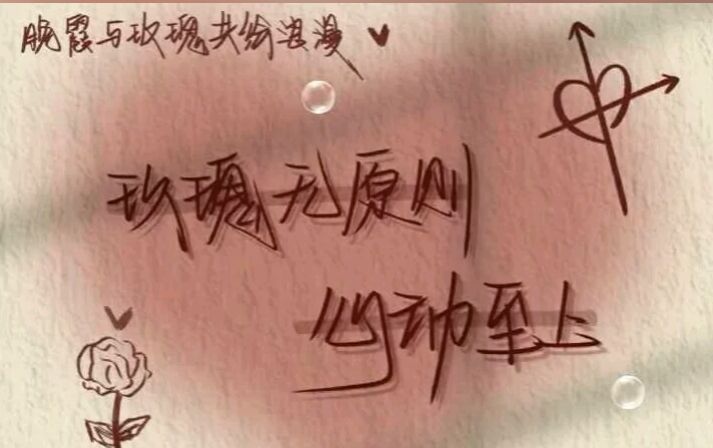 晚霞与玫瑰共绘浪漫
玫瑰无原则
心动至上